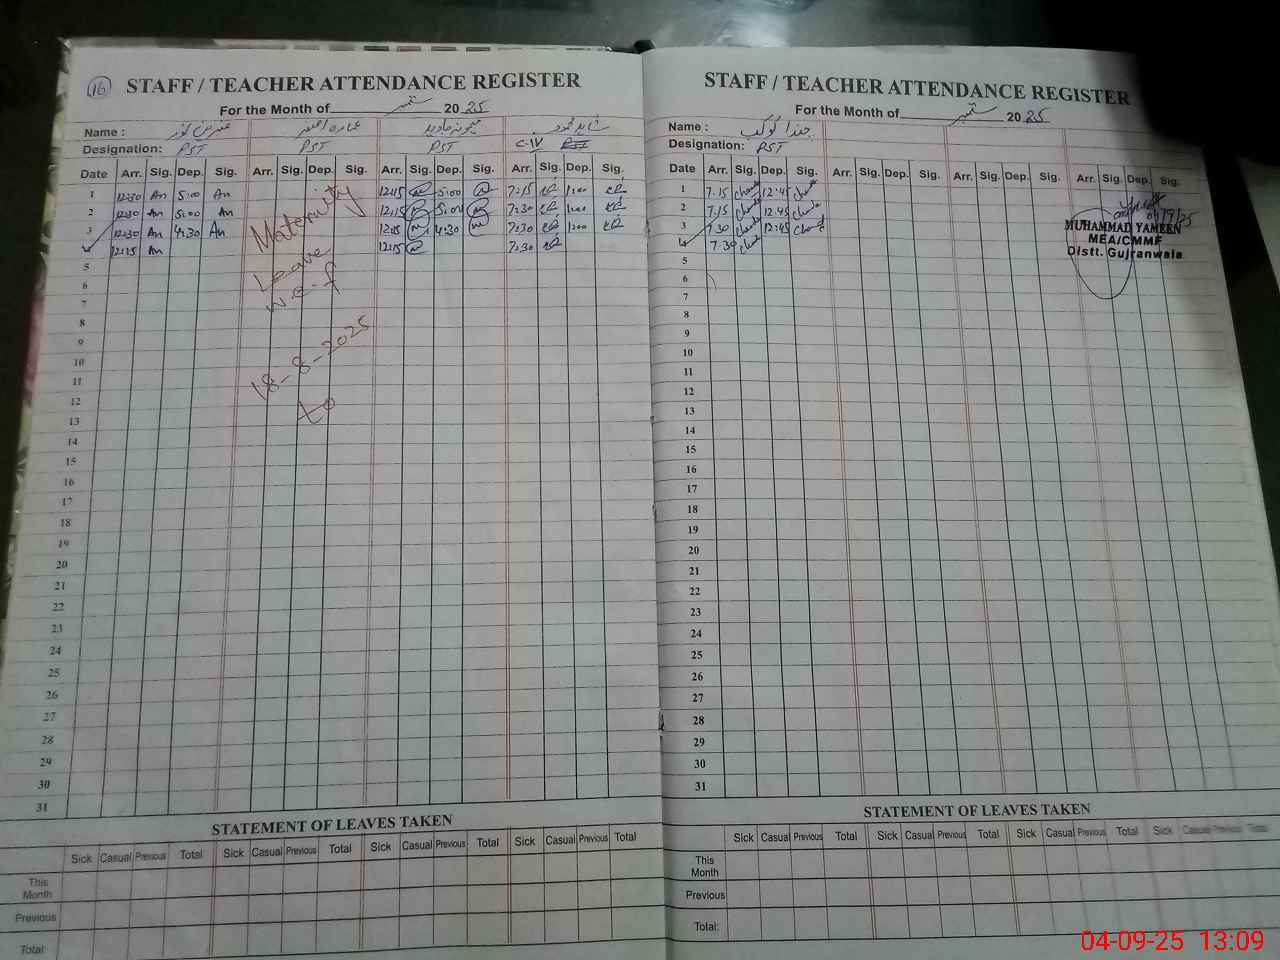 16
STAFF / TEACHER ATTENDANCE REGISTER
For the Month of ستمبر 2025
Name : عنبرین کوثر عمارہ اصغر میمونہ جاوید شاہد محمود
Designation: PST PST PST C-IV
Date Arr. Sig. Dep. Sig. Arr. Sig. Dep. Sig. Arr. Sig. Dep. Sig. Arr. Sig. Dep. Sig.
1 12:30 An 5:00 An 12:15 5:00 7:15 1:00
2 12:30 An 5:00 An 12:15 5:00 7:30 1:00
3 12:30 An 4:30 An 12:15 4:30 7:30 1:00
4 12:15 An 12:15 7:30
Maternity
Leave
w.e.f
18-8-2025
to
5
6
7
8
9
10
11
12
13
14
15
16
17
18
19
20
21
22
23
24
25
26
27
28
29
30
31
STATEMENT OF LEAVES TAKEN
Sick Casual Previous Total Sick Casual Previous Total Sick Casual Previous Total Sick Casual Previous Total
This Month
Previous
Total:
STAFF / TEACHER ATTENDANCE REGISTER
For the Month of ستمبر 2025
Name : چندا کوکب
Designation: PST
Date Arr. Sig. Dep. Sig. Arr. Sig. Dep. Sig. Arr. Sig. Dep. Sig. Arr. Sig. Dep. Sig.
1 7:15 12:45
2 7:15 12:45
3 7:30 12:45
4 7:30
04/9/25
MUHAMMAD YAMEEN
MEA/CMMF
Distt. Gujranwala
5
6
7
8
9
10
11
12
13
14
15
16
17
18
19
20
21
22
23
24
25
26
27
28
29
30
31
STATEMENT OF LEAVES TAKEN
Sick Casual Previous Total Sick Casual Previous Total Sick Casual Previous Total Sick Casual Previous Total
This Month
Previous
Total:
04-09-25 13:09